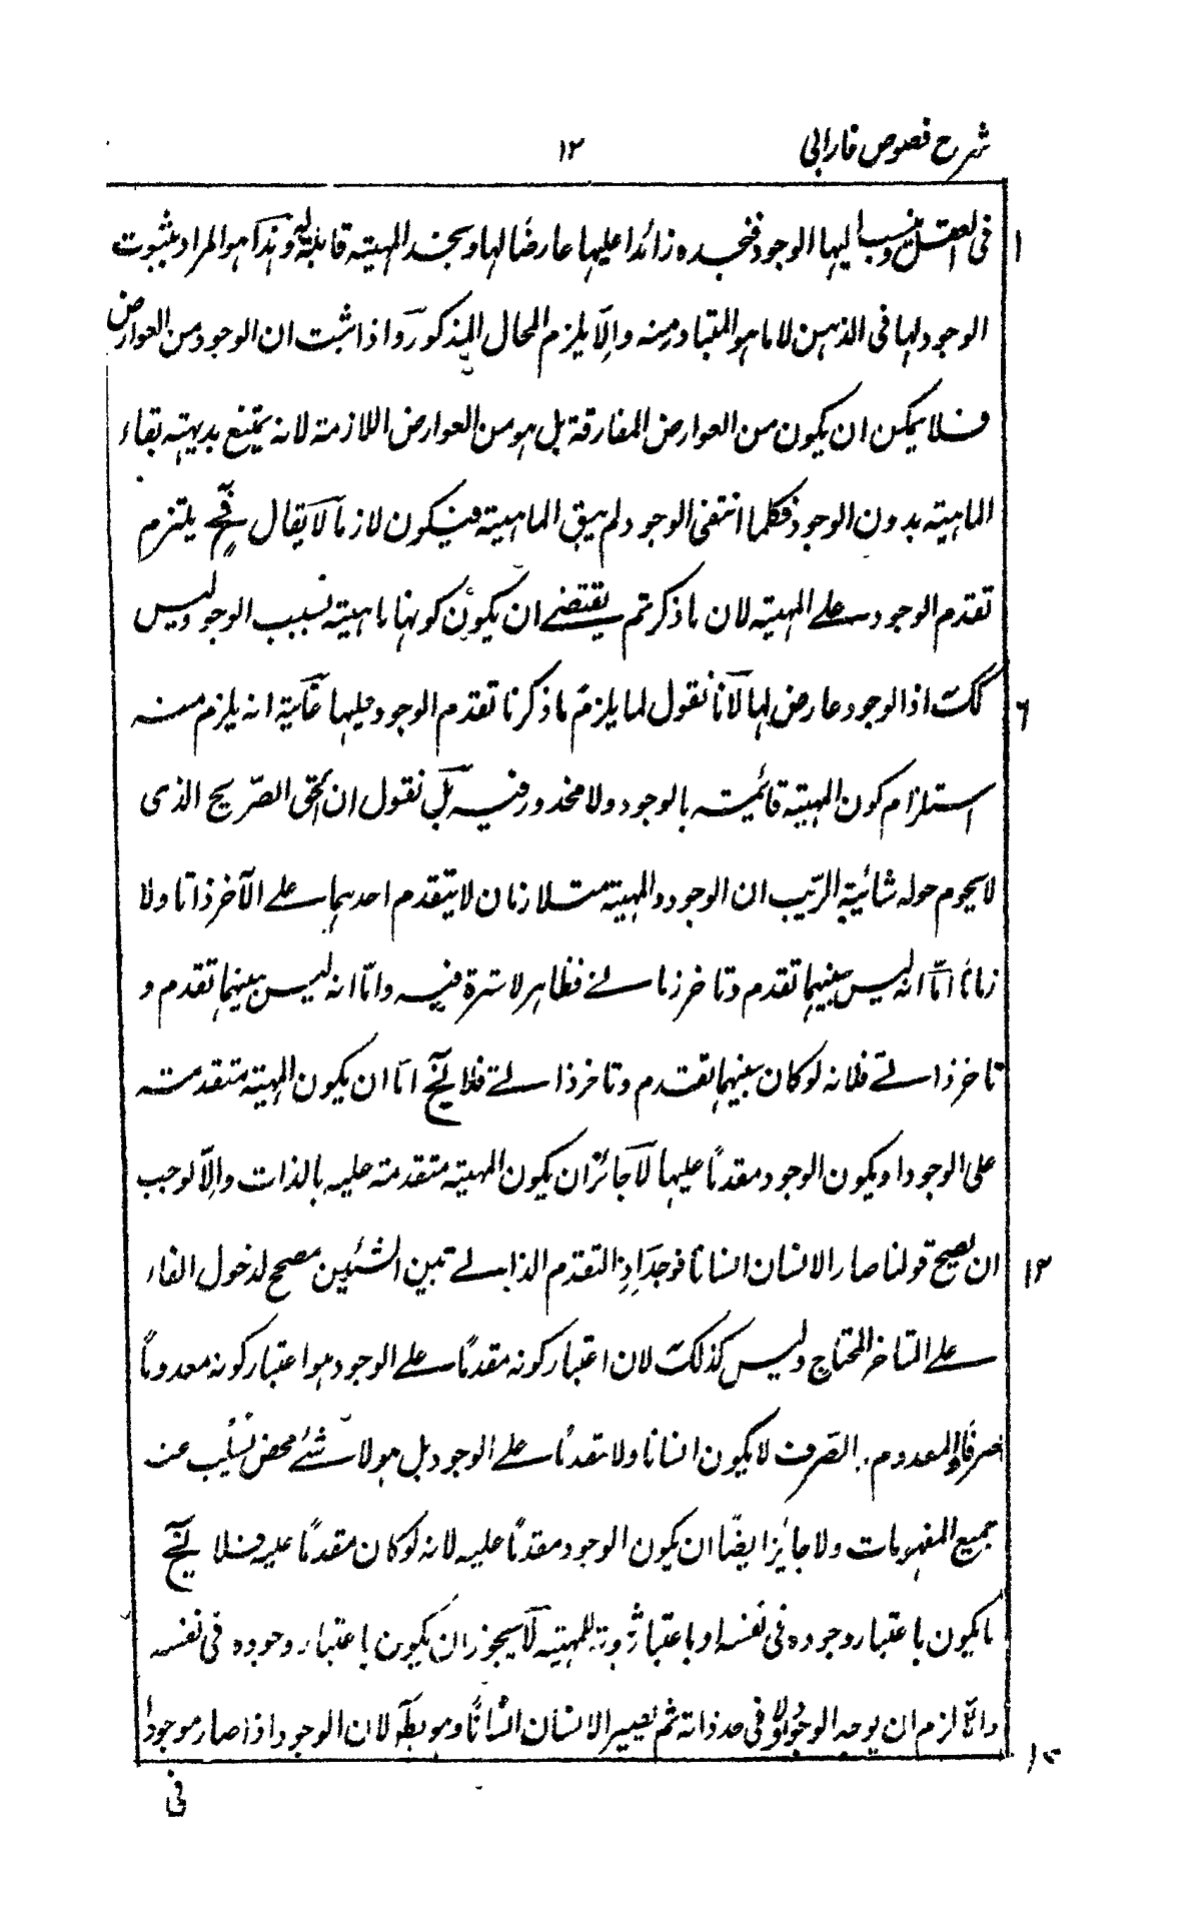 شرح فصوص فارابی
١٢
١
فى العقل وينسب اليها الوجود فنجده زائدا عليها عارضًا لها ونجد المهية قابلة له وهذا هو المراد بثبوت
الوجود لها فى الذهن لا ما هو المتبادر منه والّا يلزم المحال المذكور واذا ثبت ان الوجود من العوارض
فلا يمكن ان يكون من العوارض المفارقة بل هو من العوارض اللازمة لانه يمتنع بديهته بقاء
الماهية بدون الوجود فكلما انتفى الوجود لم يبق الماهية فيكون لازما لا يقال فح يلتزم
تقدم الوجود على المهية لان ما ذكرتم يقتضى ان يكون كونها ماهية بسبب الوجود وليس
٦
كك اذ الوجود عارض لها لانا نقول لما يلزم ما ذكرنا تقدم الوجود عليها غاية انه يلزم منه
استلزام كون المهية قائمة بالوجود ولا محذور فيه بل نقول ان الحق الصّريح الذى
لا يحوم حوله شائبة الرّيب ان الوجود والمهية متلازمان لا يتقدم احدهما على الآخر ذاتا ولا
زمانا امّا انه ليس بينهما تقدم وتاخر زمانى فظاهر لا سترة فيه وامّا انه ليس بينهما تقدم و
تاخر ذاتى فلانه لو كان بينهما تقدم وتاخر ذاتى فلا يخ اما ان يكون المهية متقدمة
على الوجود او يكون الوجود مقدمًا عليها لا جائز ان يكون المهية متقدمة عليه بالذات والّا لوجب
١٢
ان يصح قولنا صار الانسان انسانا فوجد اذ التقدم الذاتى بين الشيئين مصحح لدخول الفاء
على المتاخر المحتاج وليس كذلك لان اعتبار كونه مقدمًا على الوجود هو اعتبار كونه معدومًا
صرفا والمعدوم الصّرف لا يكون انسانا ولا مقدمًا على الوجود بل هو لا شئ محض يسلب عنه
جميع المفهومات ولا جائز ايضًا ان يكون الوجود مقدمًا عليه لانه لو كان مقدمًا عليه فلا يخ
ما يكون باعتبار وجوده فى نفسه او باعتبار ثبوته للمهية لا يجوز ان يكون باعتبار وجوده فى نفسه
والّا لزم ان يوجد الوجود اولا فى حد ذاته ثم يصير الانسان انسانًا وهو بط لان الوجود اذا صار موجودا
فى